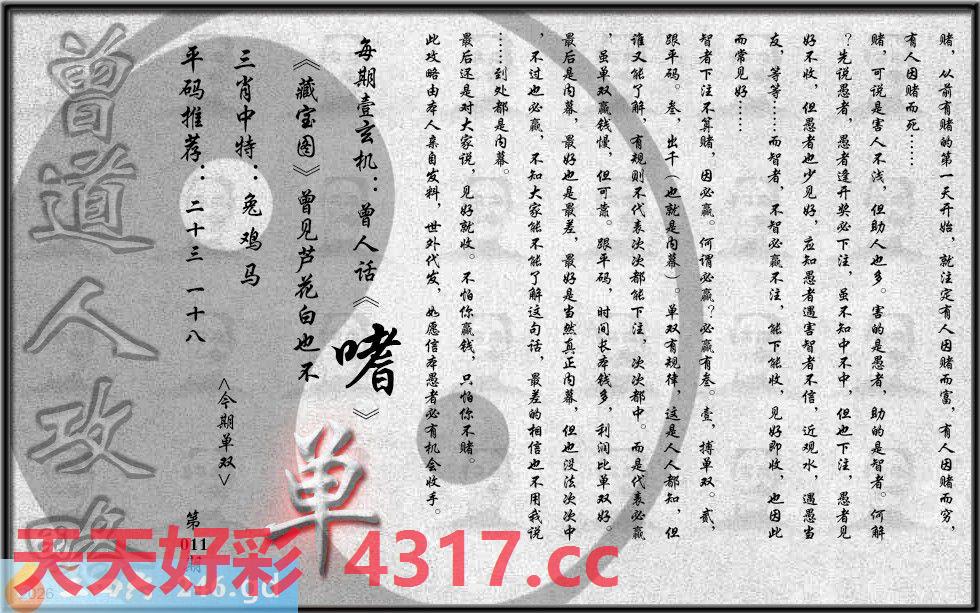 赌，从前有赌的第一天开始，就注定有人因赌而富，有人因赌而穷，
有人因赌而死……
赌，可说是害人不浅，但助人也多。害的是愚者，助的是智者。何解
？先说愚者，愚者逢开奖必下注，虽不知中不中，但也下注，愚者见
好不收，但愚者也少见好，应知愚者遇害智者不信，近观水，遇愚当
友，等等……而智者，不智必赢不注，能下能收，见好即收，也因此
而常见好……
智者下注不算赌，因必赢。何谓必赢？必赢有叁。壹，搏单双。贰，
跟平码。叁，出千（也就是内幕）。单双有规律，这是人人都知，但
谁又能了解，有规则不代表次次都能下注，次次都中。而是代表必赢
，虽单双赢钱慢，但可靠。跟平码，时间长本钱多，利润比单双好。
最后是内幕，最好也是最差，最好是当然真正内幕，但也没法次次中
，不过也必赢，不知大家能不能了解这句话，最差的相信也不用我说
……到处都是内幕。
最后还是对大家说，见好就收。不怕你赢钱，只怕你不赌。
此攻略由本人亲自发料，世外代发，如愿信本愚者必有机会收手。
每期壹玄机：曾人话《嗜》
《藏宝图》曾见芦花白也不
单
三肖中特：兔鸡马
<今期单双>
平码推荐：二十三 一十八
第011期
曾道人攻略
天天好彩 4317.cc
2026